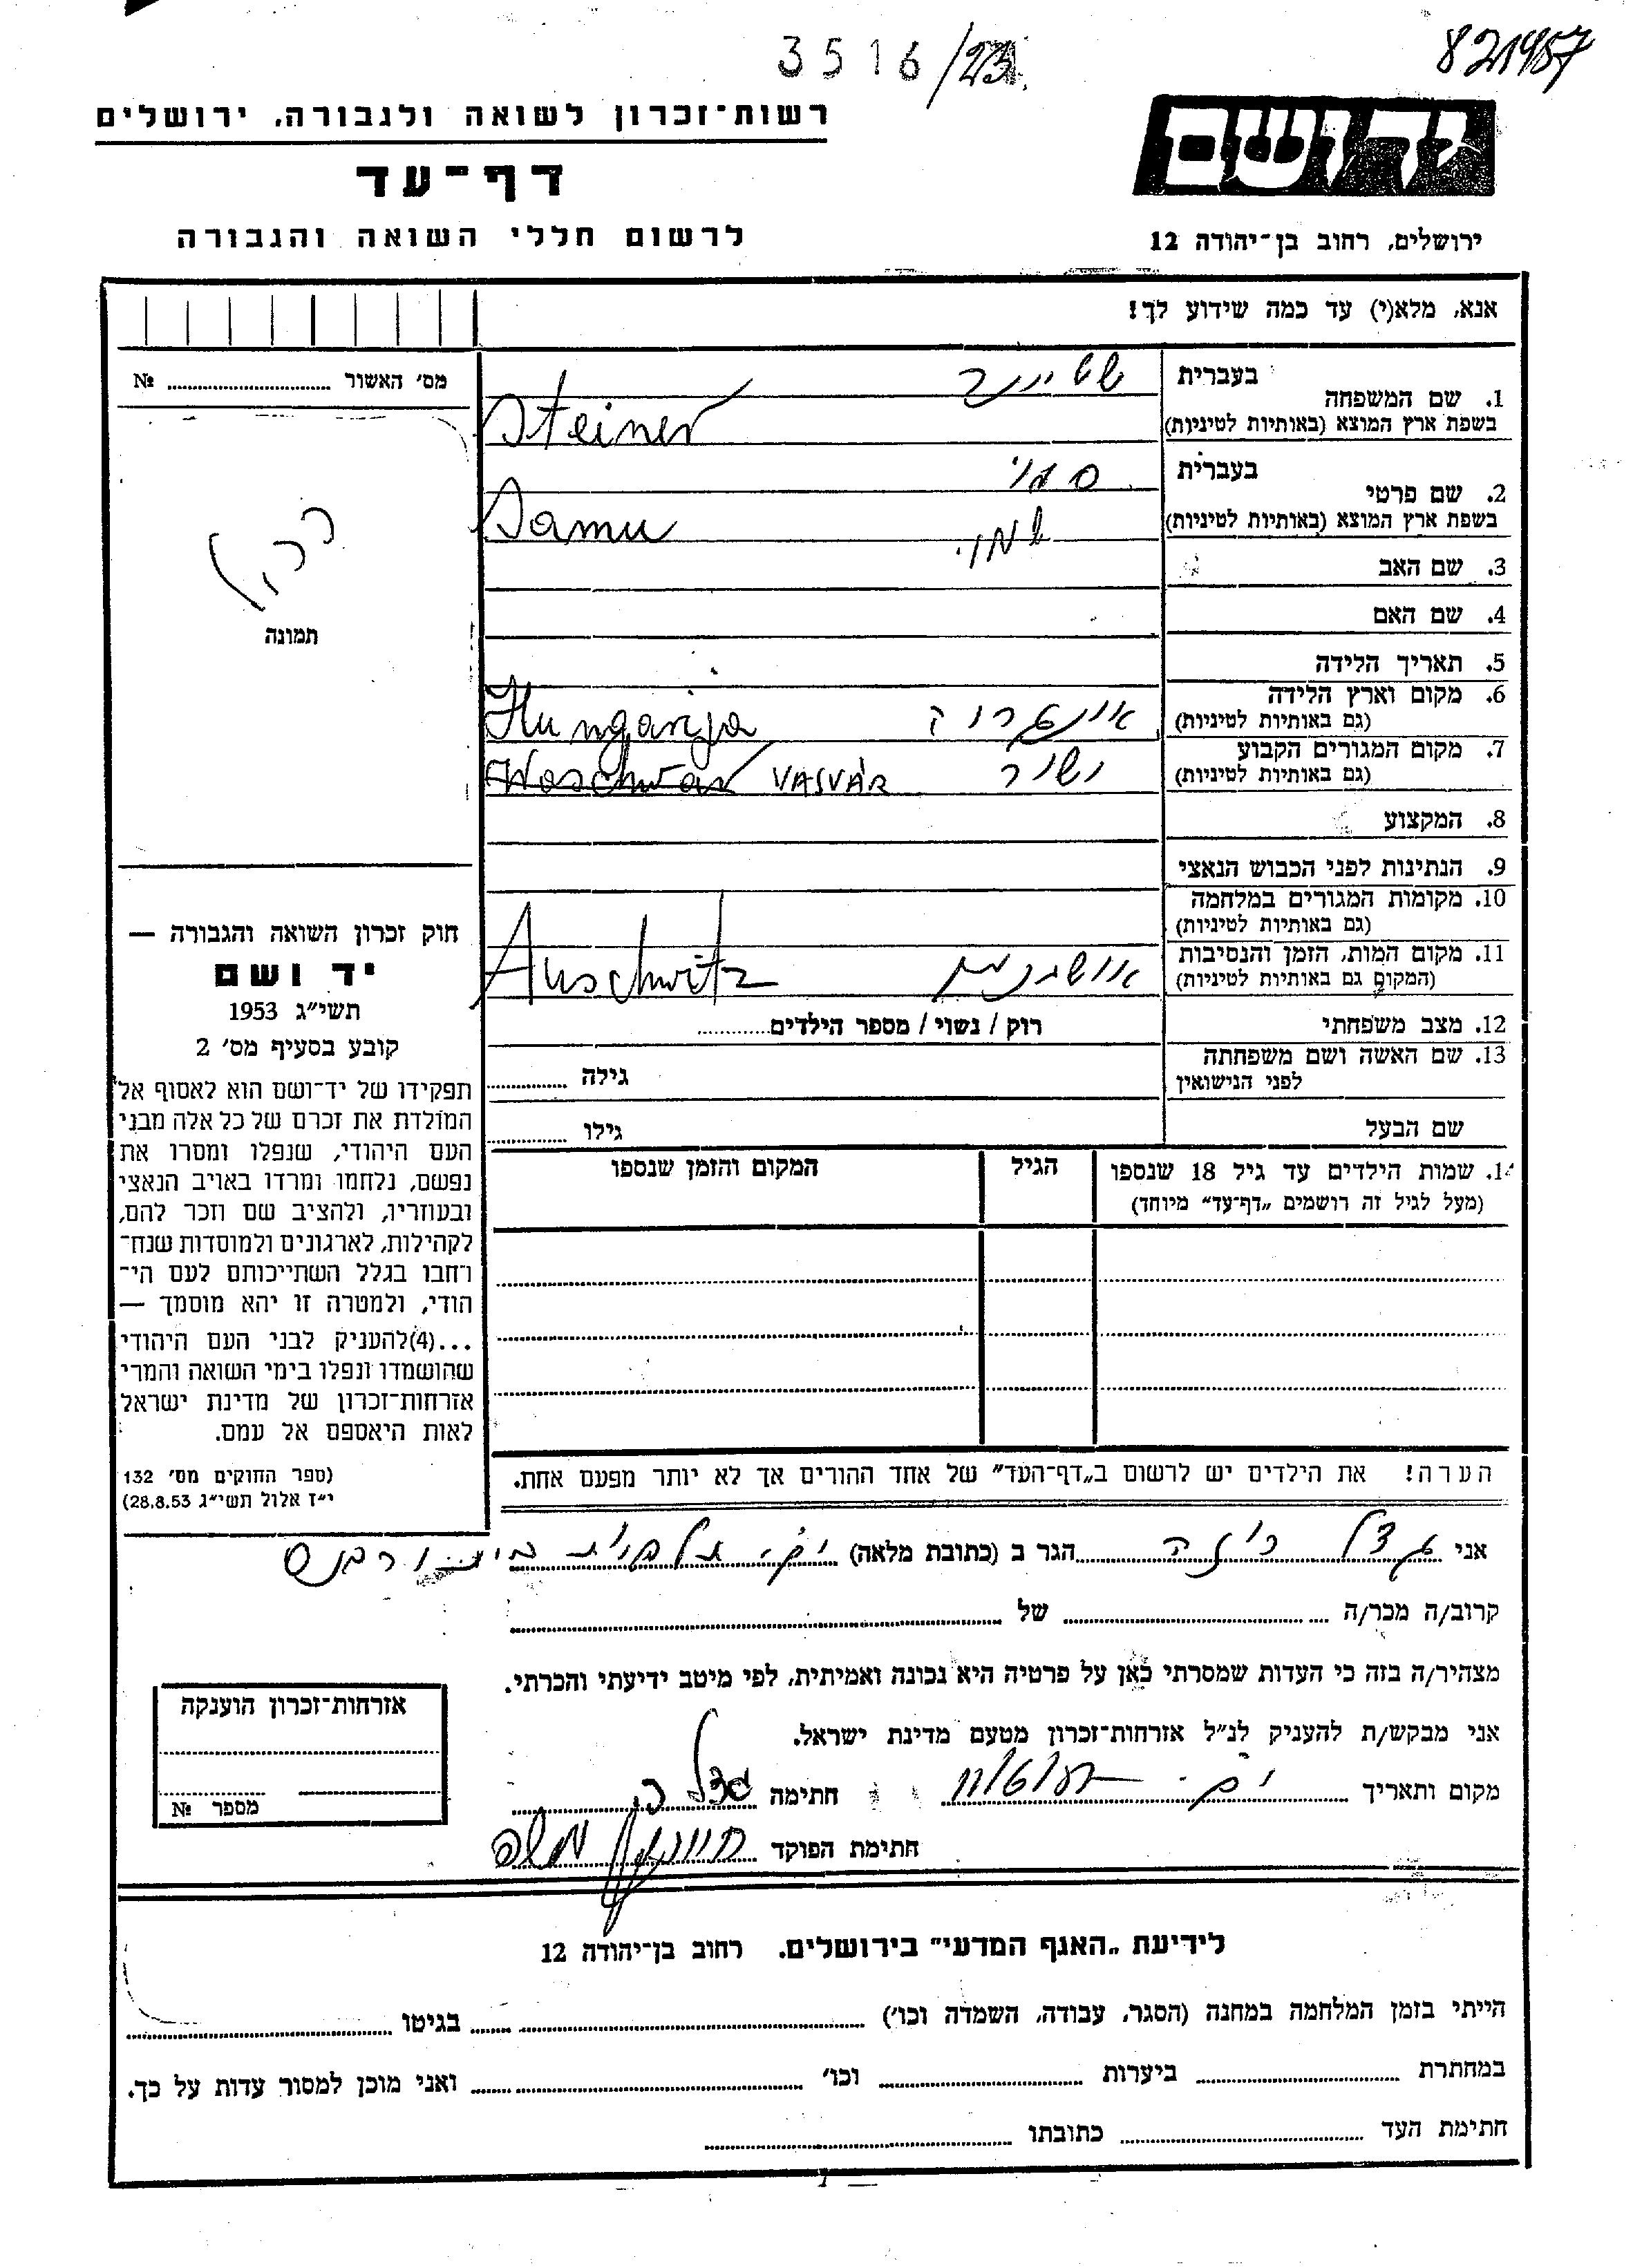 3516/23
821457
רשות־זכרון לשואה ולגבורה, ירושלים
דף־עד
לרשום חללי השואה והגבורה
יד ושם
ירושלים, רחוב בן־יהודה 12
אנא, מלא(י) עד כמה שידוע לך!
מס׳ האשור .......... №
תמונה
1. שם המשפחה
בעברית
שטיינר
בשפת ארץ המוצא (באותיות לטיניות)
Steiner
2. שם פרטי
בעברית
סמוי
בשפת ארץ המוצא (באותיות לטיניות)
Samu
3. שם האב
4. שם האם
5. תאריך הלידה
6. מקום וארץ הלידה
(גם באותיות לטיניות)
Hungarija
7. מקום המגורים הקבוע
(גם באותיות לטיניות)
VASVÁR
8. המקצוע
9. הנתינות לפני הכבוש הנאצי
10. מקומות המגורים במלחמה
(גם באותיות לטיניות)
11. מקום המות, הזמן והנסיבות
(המקום גם באותיות לטיניות)
אושוויץ Auschwitz
12. מצב משפחתי
רוק / נשוי / מספר הילדים..........
13. שם האשה ושם משפחתה
לפני הנישואין
גילה ..........
שם הבעל
גילו ..........
14. שמות הילדים עד גיל 18 שנספו
(מעל לגיל זה רושמים „דף־עד” מיוחד)
הגיל
המקום והזמן שנספו
חוק זכרון השואה והגבורה —
יד ושם
תשי״ג 1953
קובע בסעיף מס׳ 2
תפקידו של יד־ושם הוא לאסוף אל
המולדת את זכרם של כל אלה מבני
העם היהודי, שנפלו ומסרו את
נפשם, נלחמו ומרדו באויב הנאצי
ובעוזריו, ולהציב שם וזכר להם,
לקהילות, לארגונים ולמוסדות שנח־
רחבו בגלל השתייכותם לעם הי־
הודי, ולמטרה זו יהא מוסמך —
...(4)להעניק לבני העם היהודי
שהושמדו ונפלו בימי השואה והמרי
אזרחות־זכרון של מדינת ישראל
לאות היאספם אל עמם.
(ספר החוקים מס׳ 132
י״ז אלול תשי״ג 28.8.53)
הערה! את הילדים יש לרשום ב„דף־העד” של אחד ההורים אך לא יותר מפעם אחת.
אני .......... הגר ב (כתובת מלאה)
קרוב/ה מכר/ה .......... של ..........
מצהיר/ה בזה כי העדות שמסרתי כאן על פרטיה היא נכונה ואמיתית, לפי מיטב ידיעתי והכרתי.
אני מבקש/ת להעניק לנ״ל אזרחות־זכרון מטעם מדינת ישראל.
מקום ותאריך .......... חתימה
חתימת הפוקד
אזרחות־זכרון הוענקה
מספר №
לידיעת „האגף המדעי” בירושלים. רחוב בן־יהודה 12
הייתי בזמן המלחמה במחנה (הסגר, עבודה, השמדה וכו׳) .......... בגיטו ..........
במחתרת .......... ביערות .......... וכו׳ .......... ואני מוכן למסור עדות על כך.
חתימת העד .......... כתובתו ..........